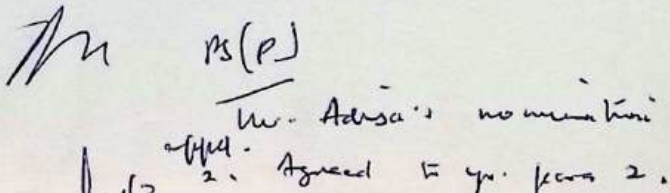 PS(P)
Mr. Adisa's nomination
appd.
2. Agreed to yr. para 2.